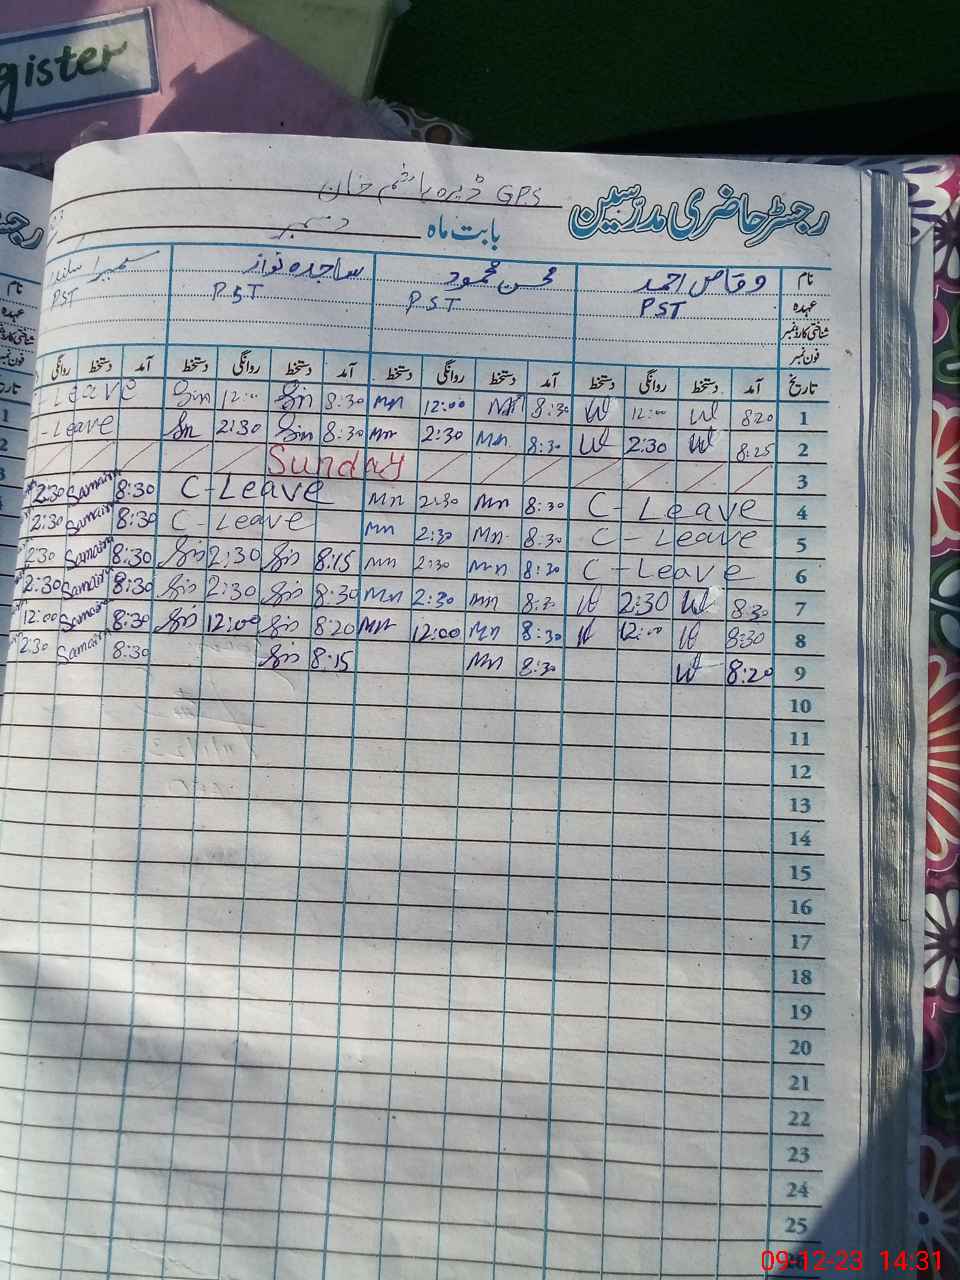 gister
GPS ڈیرہ ہاشم خان
رجسٹر حاضری مدرسین
بابت ماہ دسمبر
نام وقاص احمد محسن محمود ساجدہ نواز سمیرا
عہدہ PST PST PST PST
شناختی کارڈ نمبر
فون نمبر
تاریخ آمد دستخط روانگی دستخط آمد دستخط روانگی دستخط آمد دستخط روانگی دستخط آمد دستخط روانگی
Leave Sin 12:00 Sin 8:30 Mn 12:00 Mn 8:30 W 12:00 W 8:20 1
Leave Sin 2:30 Sin 8:30 Mn 2:30 Mn 8:30 W 2:30 W 8:25 2
Sunday 3
2:30 Samaira 8:30 C-Leave Mn 2:30 Mn 8:30 C-Leave 4
2:30 Samaira 8:30 C-Leave Mn 2:30 Mn 8:30 C-Leave 5
2:30 Samaira 8:30 Sin 2:30 Sin 8:15 Mn 2:30 Mn 8:30 C-Leave 6
2:30 Samaira 8:30 Sin 2:30 Sin 8:30 Mn 2:30 Mn 8:30 W 2:30 W 8:30 7
12:00 Samaira 8:30 Sin 12:00 Sin 8:20 Mn 12:00 Mn 8:30 W 12:00 W 8:30 8
2:30 Samaira 8:30 Sin 8:15 Mn 8:30 W 8:20 9
10
11
12
13
14
15
16
17
18
19
20
21
22
23
24
25
09-12-23 14:31